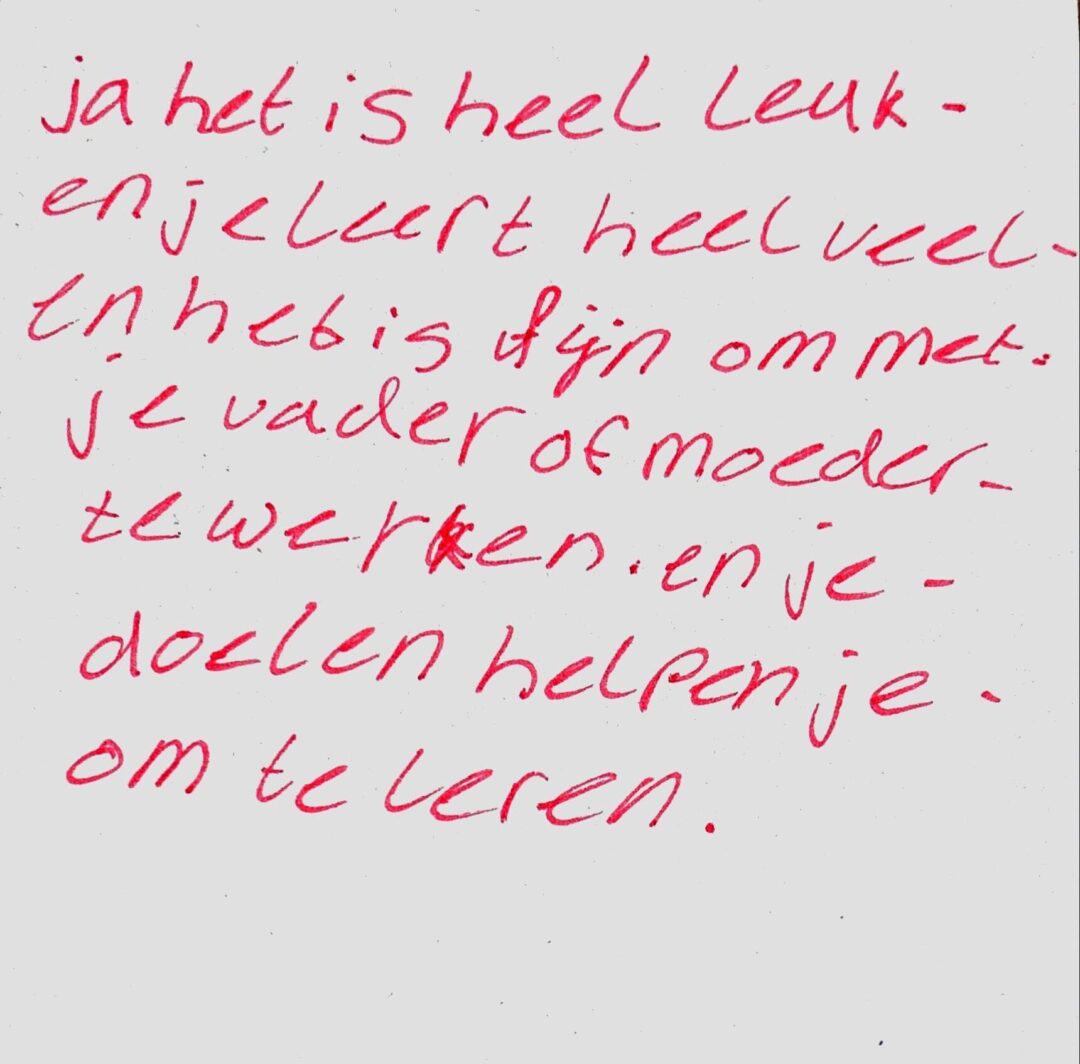 ja het is heel leuk -
en je leert heel veel -
en het is fijn om met.
je vader of moeder -
te werken. en je -
doelen helpen je -
om te leren.